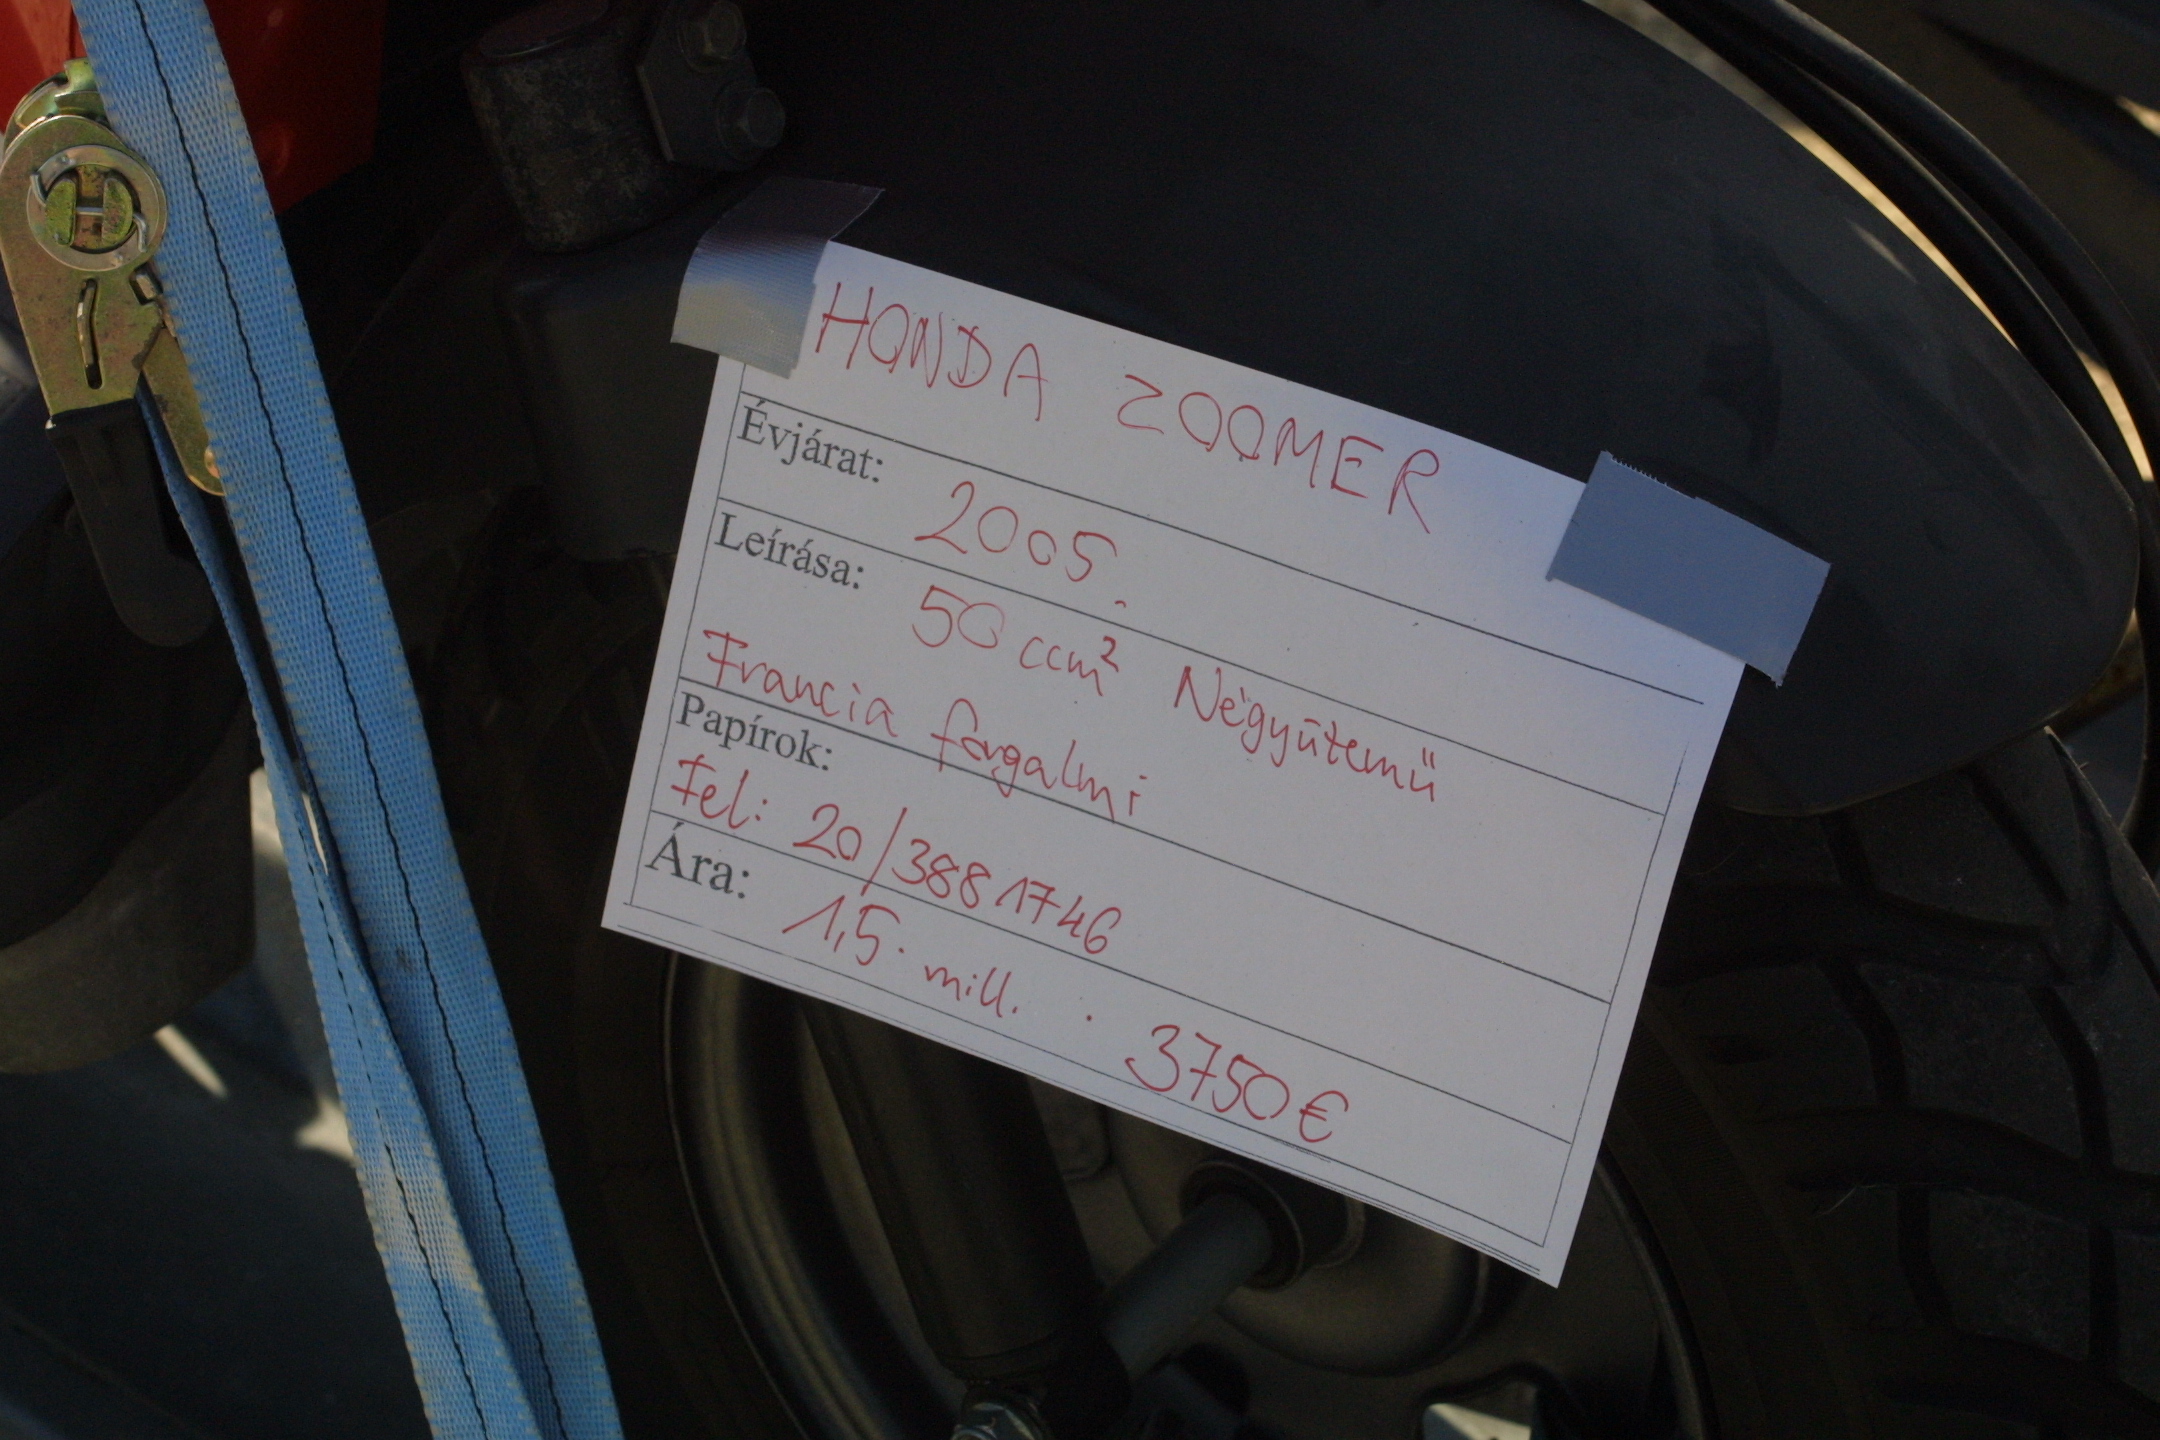 HONDA ZOOMER
Évjárat: 2005.
Leírása: 50 ccm² Négyütemű
Francia forgalmi
Papírok:
Tel: 20/3881746
Ára: 1,5. mill. . 3750€